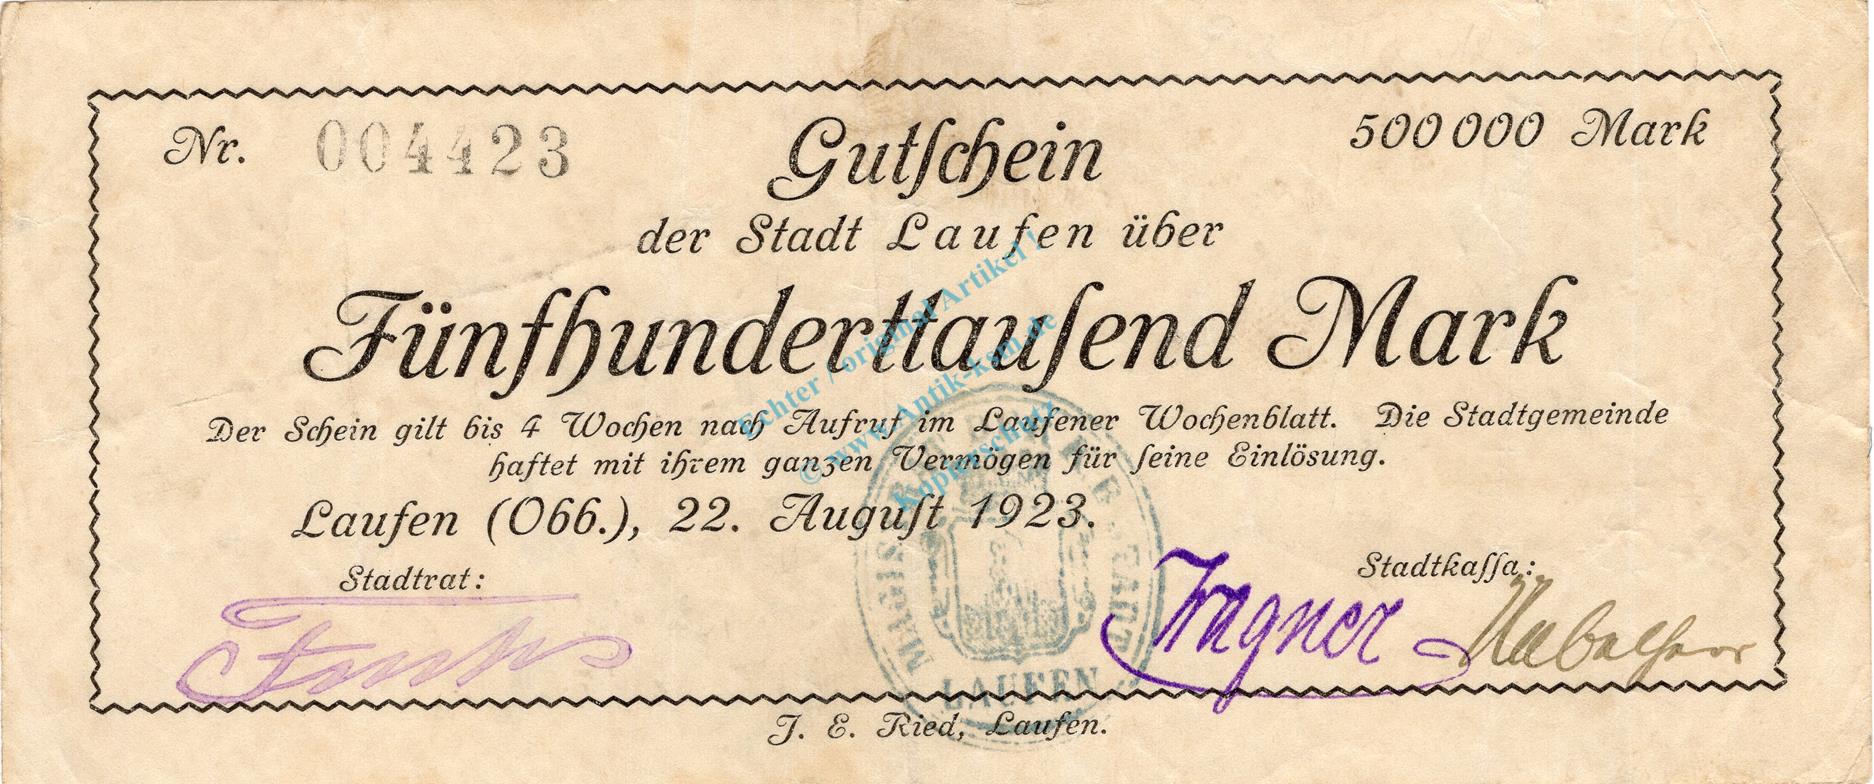 Nr. 004423
Gutſchein
500 000 Mark
der Stadt Laufen über
Fünfhunderttauſend Mark
Der Schein gilt bis 4 Wochen nach Aufruf im Laufener Wochenblatt. Die Stadtgemeinde
haftet mit ihrem ganzen Vermögen für ſeine Einlöſung.
Laufen (Obb.), 22. Auguſt 1923.
Stadtrat:
Stadtkaſſa:
Wagner
LAUFEN
J. E. Ried, Laufen.
Echter / original Artikel !
© www.Antik-ksm.de
Kopierschutz